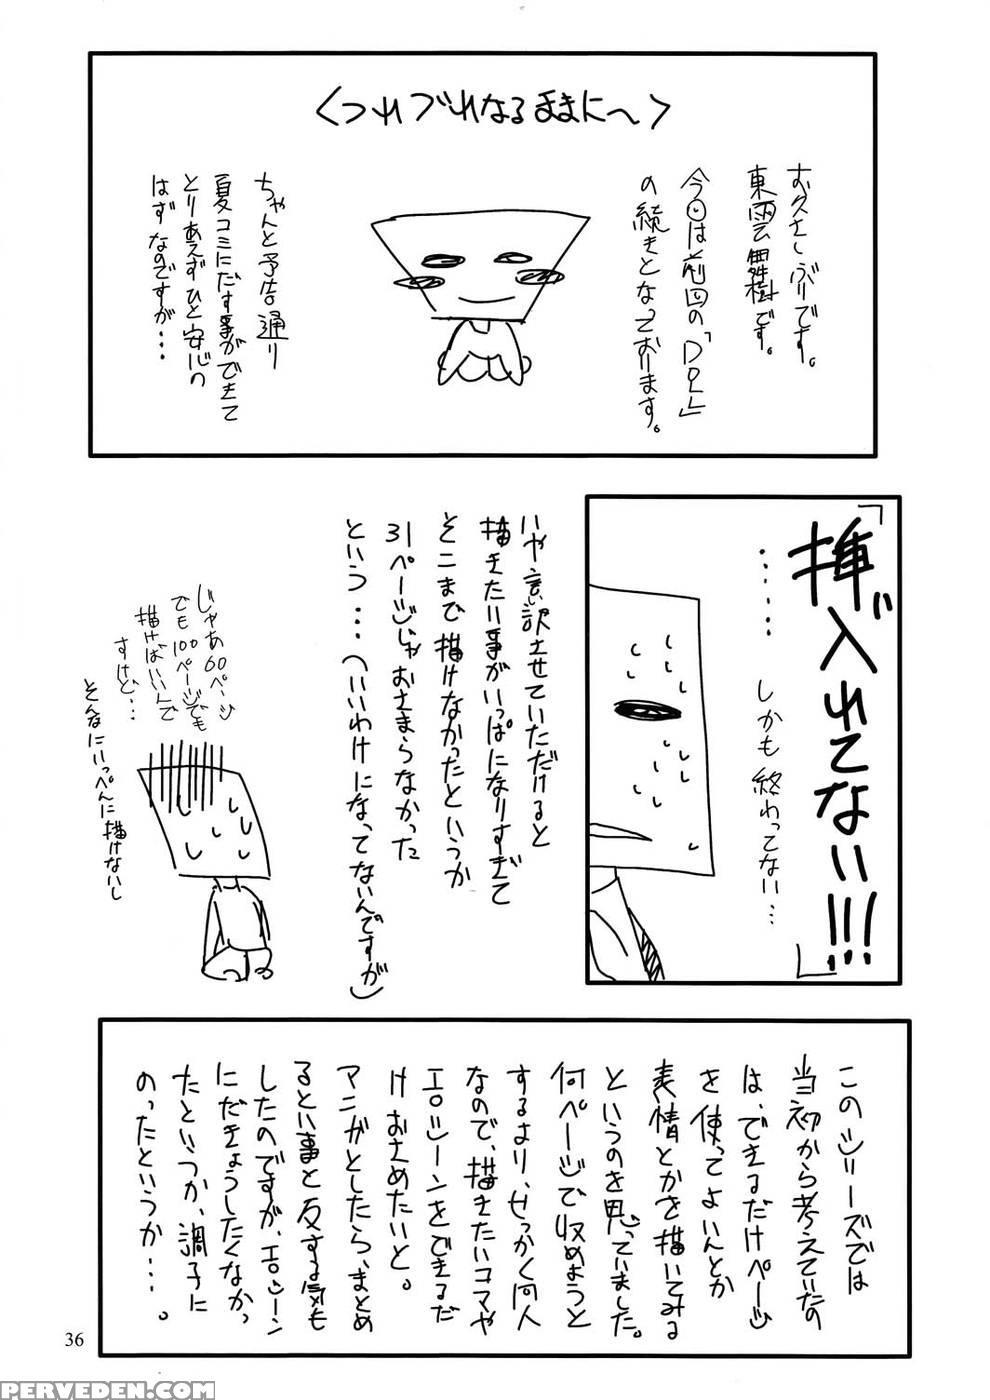 〈つれづれなるままに〜〉
お久さしぶりです。
東雲霧樹です。
今回は前回の「DOL」
の続きとなっております。
ちゃんと予告通り
夏コミにだす事ができて
とりあえずひと安心の
はずなのですが・・・
「挿入れてない!!!」
・・・・・・しかも終わってない・・・
いや言い訳させていただけると
描きたい事がいっぱいになりすぎて
そこまで描けなかったというか
31ページじゃおさまらなかった
という・・・(いいわけになってないんですが)
じゃあ60ページ
でも100ページでも
描けばいいんで
すけど・・・
そんなにいっぺんに描けないし
このシリーズでは
当初から考えていたの
は、できるだけページ
を使ってよいんとか
表情とかを描いてみる
というのを思っていました。
何ページで収めようと
するより、せっかく同人
なので、描きたいコマや
エロシーンをできるだ
けおさめたいと。
マンガとしたら、まとめ
るとい事と反する気も
したのですが、エロシーン
にだきょうしたくなかっ
たというか、調子に
のったというか・・・。
36
PERVEDEN.COM